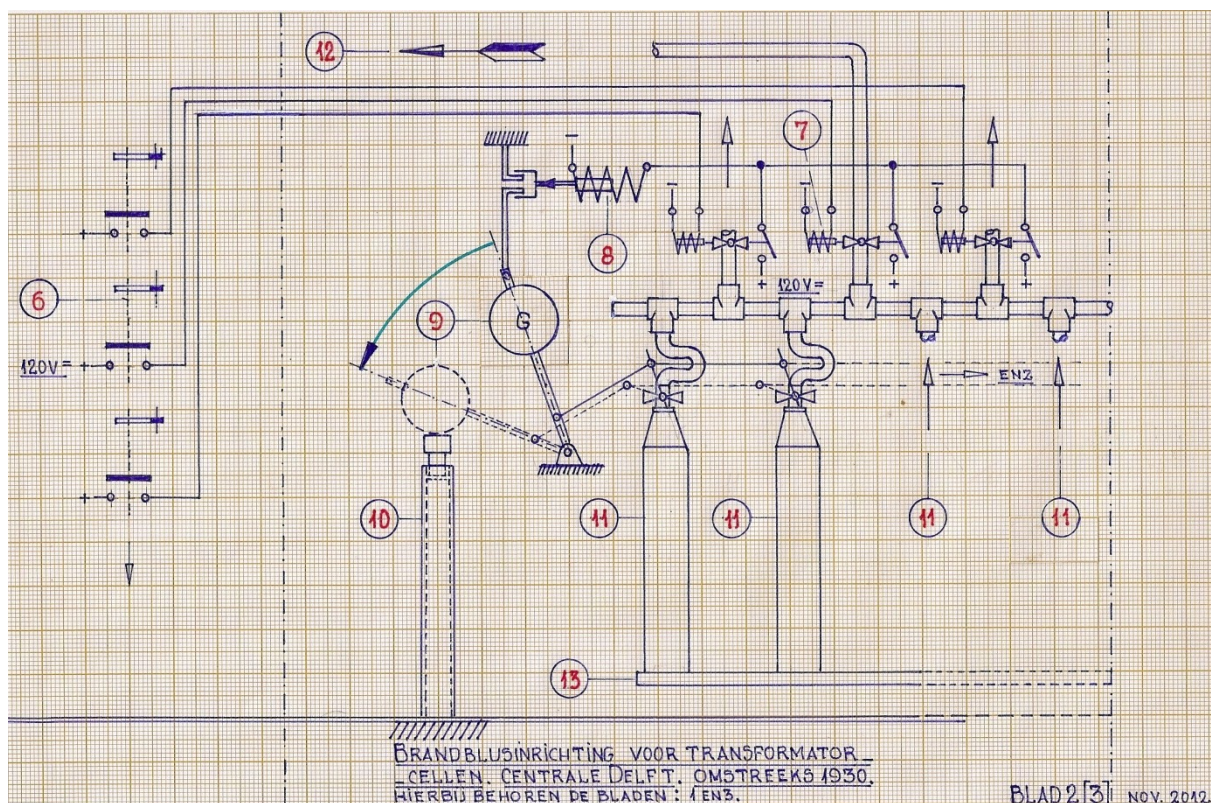 12
7
8
6
120V=
120V=
9
G
ENZ
10
11
11
11
11
13
BRANDBLUSINRICHTING VOOR TRANSFORMATOR_
_CELLEN. CENTRALE DELFT. OMSTREEKS 1930.
HIERBIJ BEHOREN DE BLADEN: 1 EN 3.
BLAD 2[3] NOV. 2012